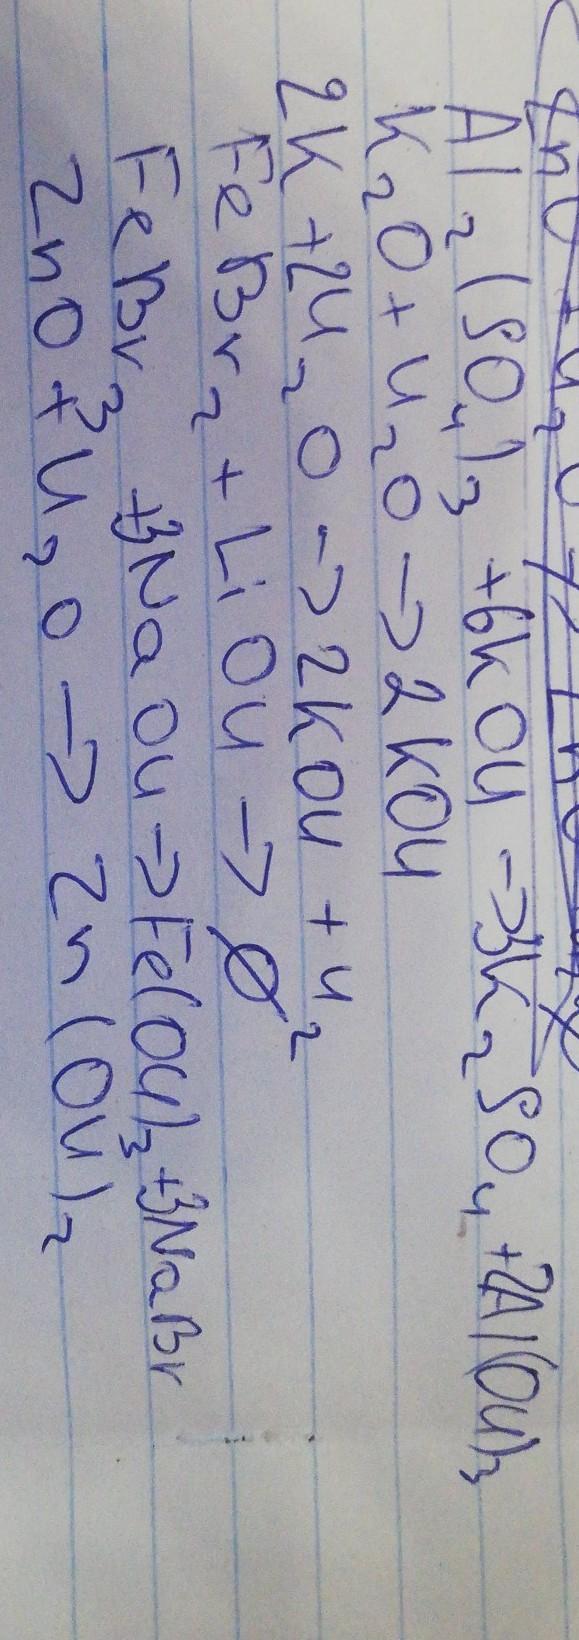 Al2(SO4)3 + 6KOH -> 3K2SO4 + 2Al(OH)3
K2O + H2O -> 2KOH
2K + 2H2O -> 2KOH + H2
FeBr2 + LiOH -> Ø
FeBr3 + 3NaOH -> Fe(OH)3 + 3NaBr
ZnO + H2O -> Zn(OH)2